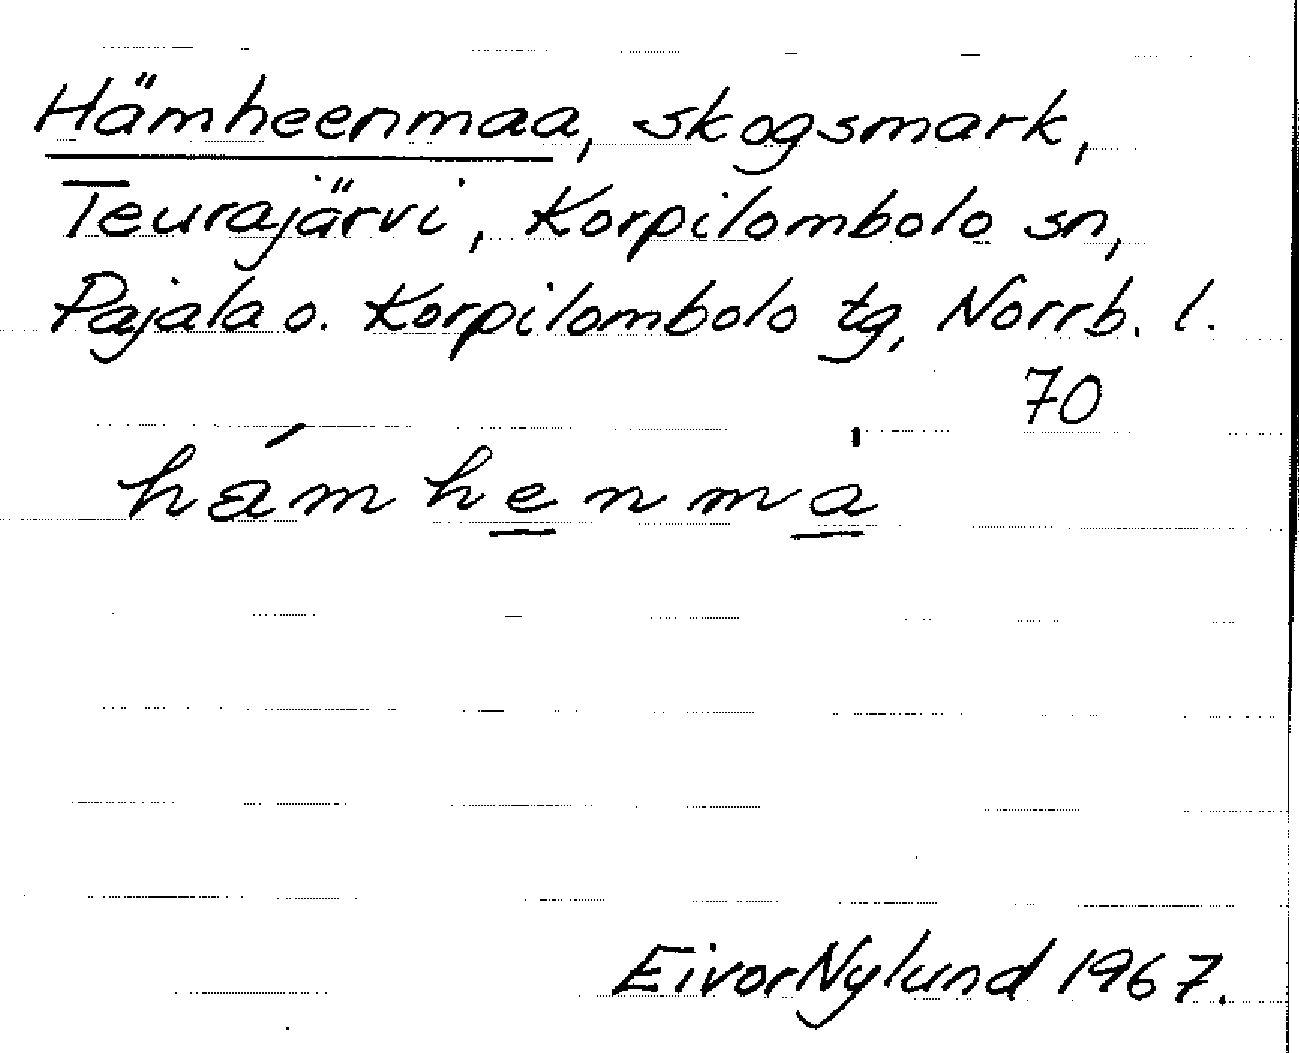 Hämheenmaa, skogsmark,
Teurajärvi, Korpilombolo sn,
Pajala o. Korpilombolo tg, Norrb. l.
70
hámhenmà
Eivor Nylund 1967.